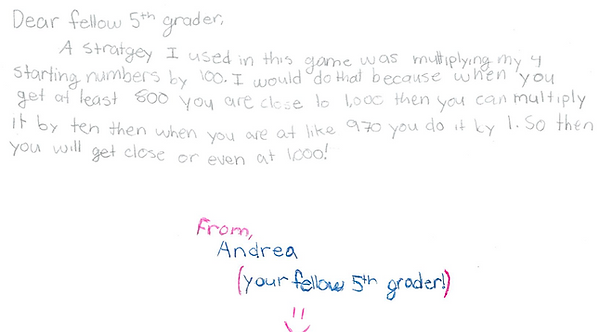 Dear fellow 5th grader,
A stratgey I used in this game was multiplying my 4
starting numbers by 100. I would do that because when you
get at least 800 you are close to 1,000 then you can multiply
it by ten then when you are at like 970 you do it by 1. So then
you will get close or even at 1,000!
From,
Andrea
(your fellow 5th grader!)